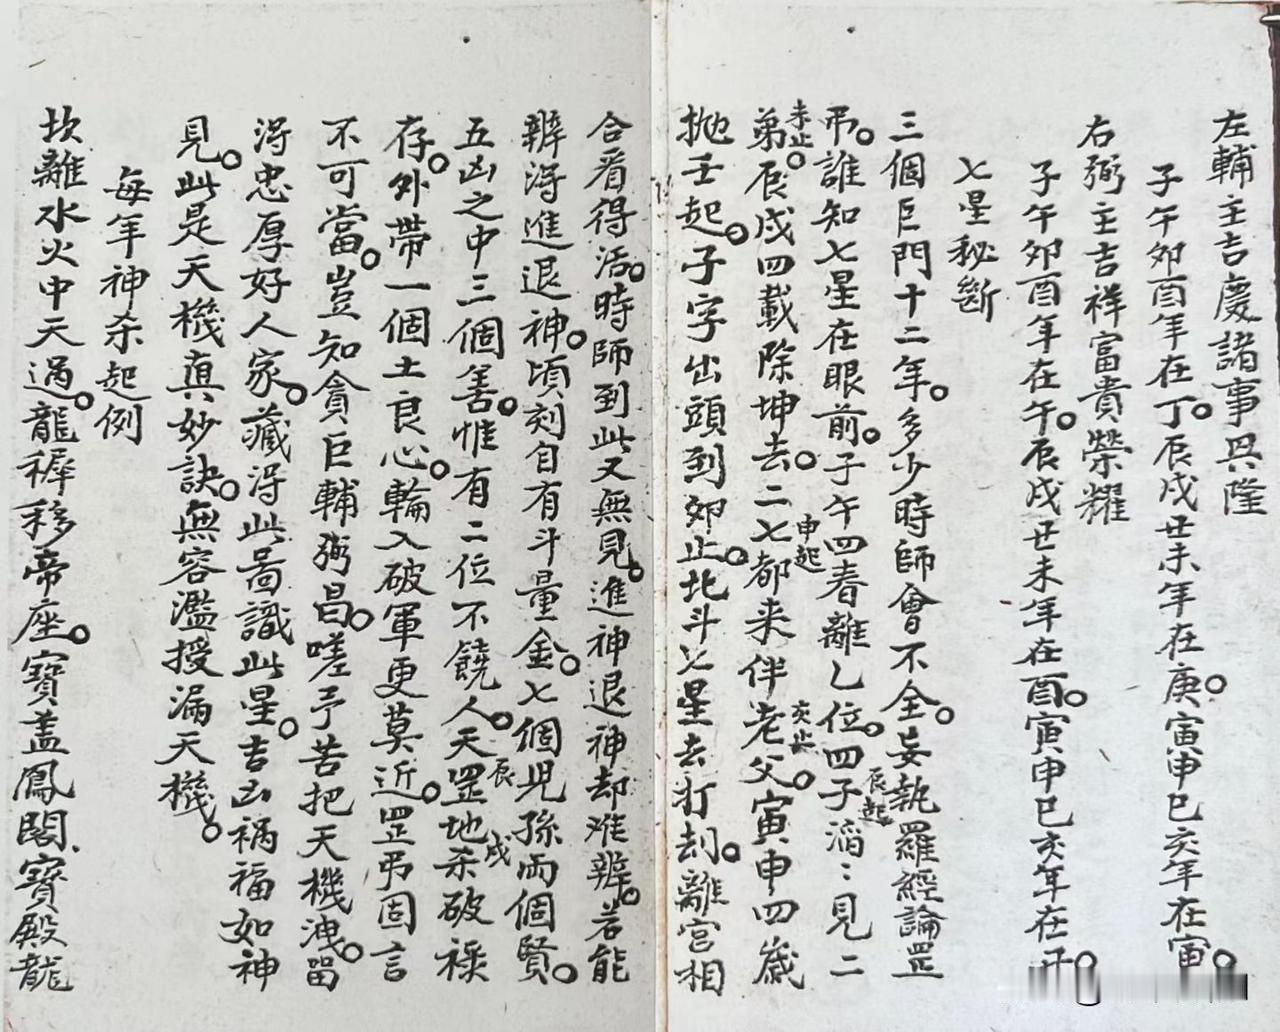 左輔主吉慶諸事興隆
子午夘酉年在丁。辰戌丑未年在庚。寅申巳亥年在寅。
右弼主吉祥富貴榮耀
子午夘酉年在午。辰戌丑未年在酉。寅申巳亥年在子。
七星秘斷
三個巨門十二年。多少時師會不全。妄執羅經論罡
吊。誰知七星在眼前。子午四春離乙位。四子滔〻見二
辰起
未止
弟。辰戌四載除坤去。二七都来伴老父。寅申四歲
申起
亥止
拋壬起。子字出頭到夘止。北斗七星去打刦。離宮相
合看得活。時師到此又無見。進神退神却难辨。若能
辨淂進退神。頃刻自有斗量金。七個児孫両個賢。
五凶之中三個善。惟有二位不饒人。天罡地杀破祿
辰
戌
存。外帶一個土良心。輪入破軍更莫近。罡吊固言
不可當。豈知貪巨輔弼昌。嗟予苦把天機洩。留
淂忠厚好人家。藏淂此啚識此星。吉凶祸福如神
見。此是天機眞妙訣。無容濫授漏天機。
每年神杀起例
坎離水火中天過。龍穉移帝座。寶盖鳳閣寶殿龍